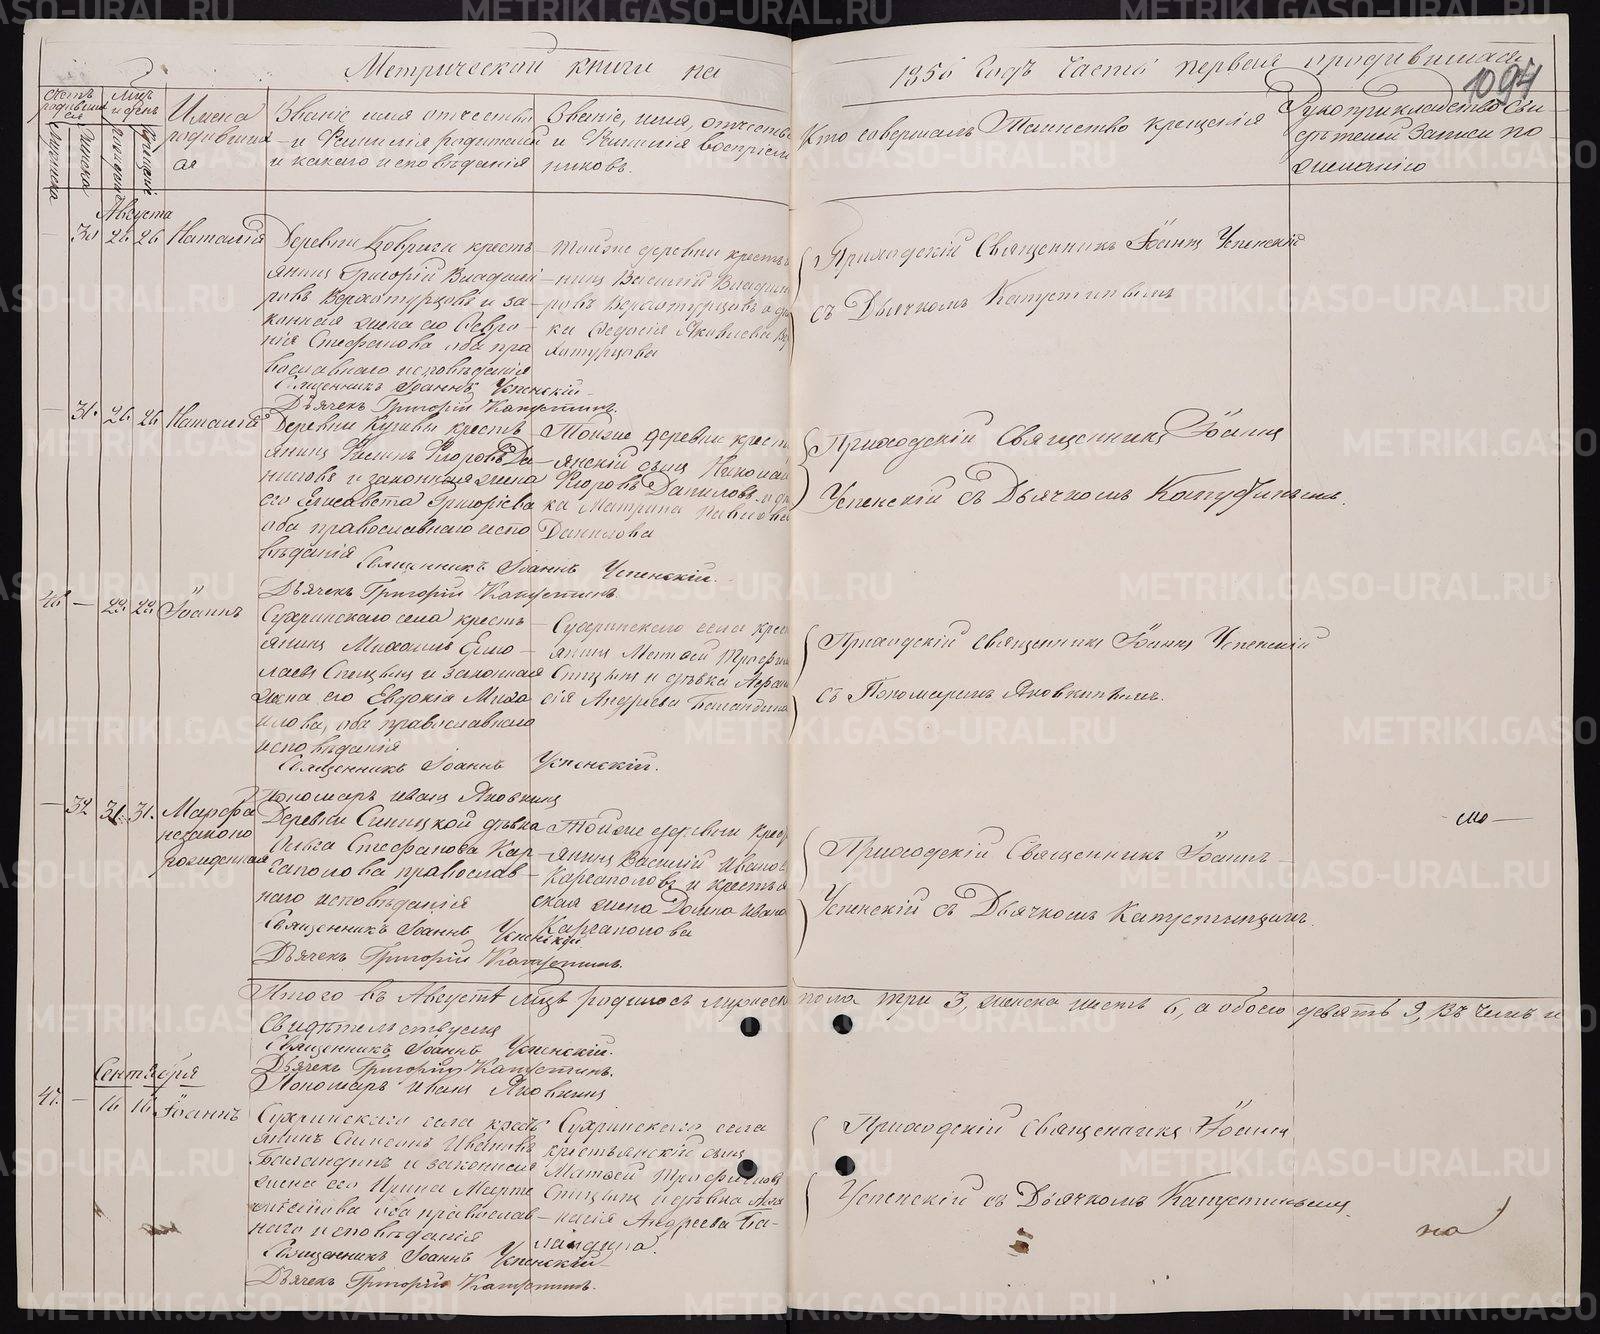 Метрической книги на 1850 годъ часть первая о родившихся
1094
Счетъ родившихся
Мѣсяцъ и день
Имена родившихся
Званіе имя отчество и Фамилія родителей и какого исповѣданія
Званіе, имя, отчество и Фамилія воспріемниковъ.
Кто совершалъ Таинство крещенія
Рукоприкладство свидѣтелей записи по желанію
Мужеска
Женска
рожденія
крещенія
Августа
30 26 26 Наталія
Деревни крестьянинъ Григорій Владиміровъ Верхотурцовъ и законная жена его Февронія Стефанова оба православнаго исповѣданія
Тойже деревни крестьянинъ Василій Владиміровъ Верхотурцовъ и дѣвка Федосія Яковлева Верхотурцова
Приходскій Священникъ Іоаннъ Успенскій
съ Дьячкомъ Капустинымъ
Священникъ Іоаннъ Успенскій
Дьячекъ Григорій Капустинъ.
31. 26 26 Наталія
Деревни крестьянинъ Егоровъ Даниловъ и законная жена его Елисавета Григорьева оба православнаго исповѣданія
Тойже деревни крестьянскій сынъ Николай Егоровъ Даниловъ и дѣвка Матрина Павлова Данилова
Приходскій Священникъ Іоаннъ
Успенскій съ Дьячкомъ Капустинымъ.
Священникъ Іоаннъ Успенскій.
Дьячекъ Григорій Капустинъ
46 — 29 29 Іоаннъ
Сухринскаго села крестьянинъ Михаилъ Спицынъ и законная жена его Евдокія Михайлова, оба православнаго исповѣданія
Сухринскаго села крестьянинъ Матвей Трофимовъ Спицынъ и дѣвка Афанасія Андреева Баландина
Приходскій священникъ Іоаннъ Успенскій
съ Пономаремъ Яковкинымъ.
Священникъ Іоаннъ Успенскій.
Пономарь Иванъ Яковкинъ
— 32 31. 31. Марфа незаконорожденная
Деревни Синицкой дѣвка Ольга Стефанова Каргаполова православнаго исповѣданія
Тойже деревни крестьянинъ Василій Ивановъ Каргаполовъ и крестьянская жена Домна Иванова Каргаполова
Приходскій Священникъ Іоаннъ
Успенскій съ Дьячкомъ Капустинымъ.
Священникъ Іоаннъ Успенскій
Дьячекъ Григорій Капустинъ.
Итого въ Августѣ мѣсяцѣ родилось мужеска пола три 3, женска шесть 6, а обоего девять 9, въ чемъ и
Свидѣтельствуемъ
Священникъ Іоаннъ Успенскій.
Дьячекъ Григорій Капустинъ.
Пономарь Иванъ Яковкинъ
Сентября
47. — 16 16 Іоаннъ
Сухринскаго села крестьянинъ Симеонъ Ивановъ Баландинъ и законная жена его Ирина оба православнаго исповѣданія
Сухринскаго села крестьянскій сынъ Матвей Трофимовъ Спицынъ и дѣвка Афанасія Андреева Баландина.
Приходскій священникъ Іоаннъ
Успенскій съ Дьячкомъ Капустинымъ.
на
Священникъ Іоаннъ Успенскій
Дьячекъ Григорій Капустинъ.
METRIKI.GASO-URAL.RU